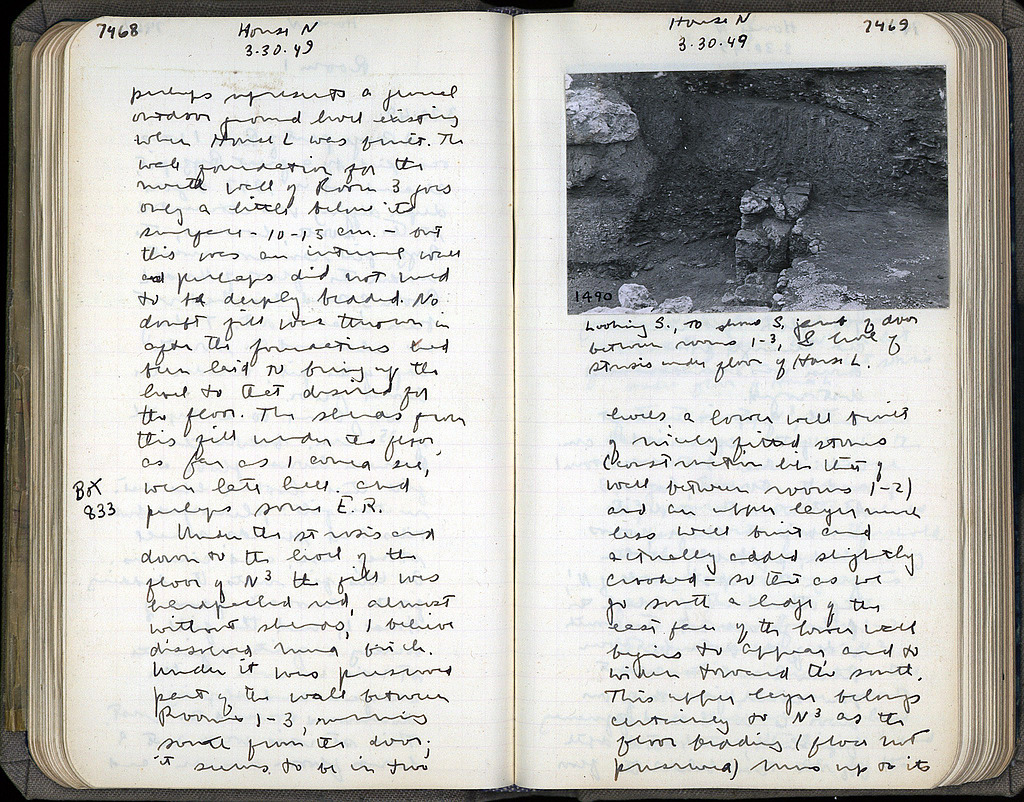 7468
House N
3.30.49
perhaps represents a general
outdoor ground level existing
when House L was built. The
wall foundation for the
north wall of Room 3 goes
only a little below its
surface - 10-15 cm. - but
this was an internal wall
and perhaps did not need
to be deeply bedded. No
doubt fill was thrown in
after the foundations had
been laid to bring up the
level to that desired for
the floor. The sherds from
this fill under the floor,
as far as I could see,
were late hell. and
perhaps some E.R.
Box
833
Under the strosis and
down to the level of the
floor of N³ the fill was
hardpacked red, almost
without sherds, I believe
dissolved mud brick.
Under it was preserved
part of the wall between
Rooms 1-3, running
south from the door;
it seems to be in two
House N
7469
3.30.49
1490
Looking S., to show S. jamb of door
between rooms 1-3, & level of
strosis under floor of House L.
levels, a lower well built
of nicely fitted stones
(construction like that of
wall between rooms 1-2)
and an upper layer much
less well built and
actually added slightly
crooked - so that as we
go south a ledge of the
east face of the lower wall
begins to appear and to
widen toward the south.
This upper layer belongs
certainly to N³ as the
floor bedding (floor not
preserved) runs up to its